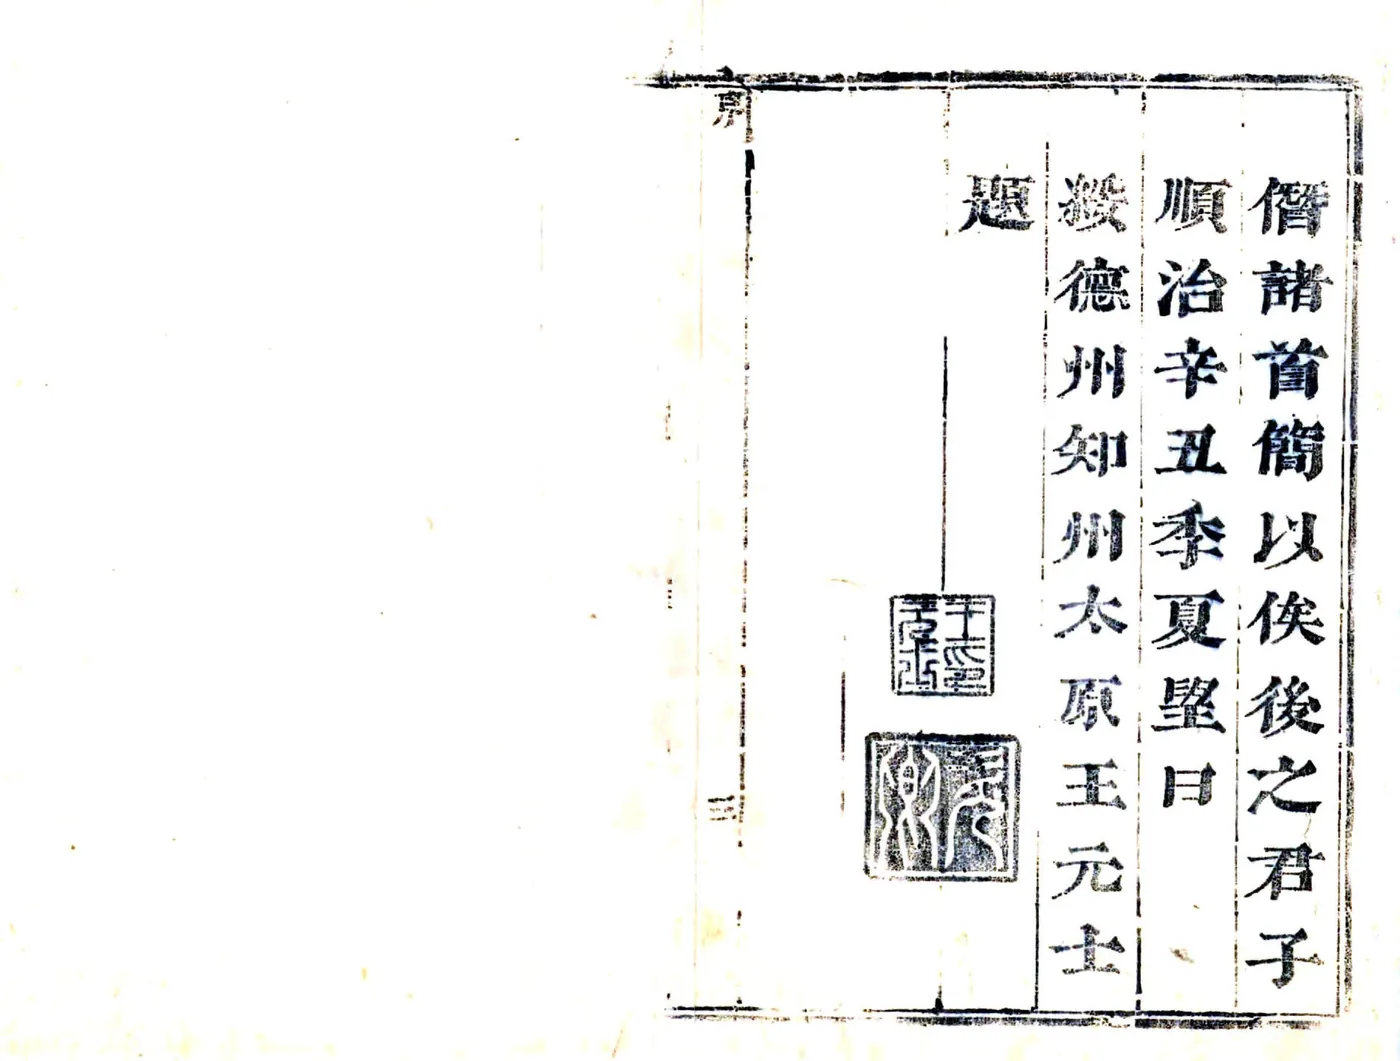 僭諸首簡以俟後之君子
順治辛丑季夏朢日
綏德州知州太原王元士
題
序
三